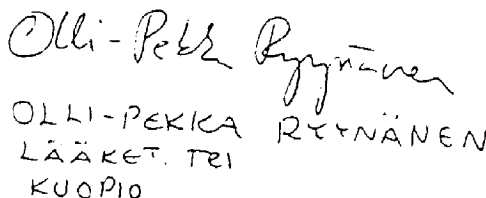 Olli-Pekka Ryynänen
OLLI-PEKKA RYYNÄNEN
LÄÄKET. TRI
KUOPIO